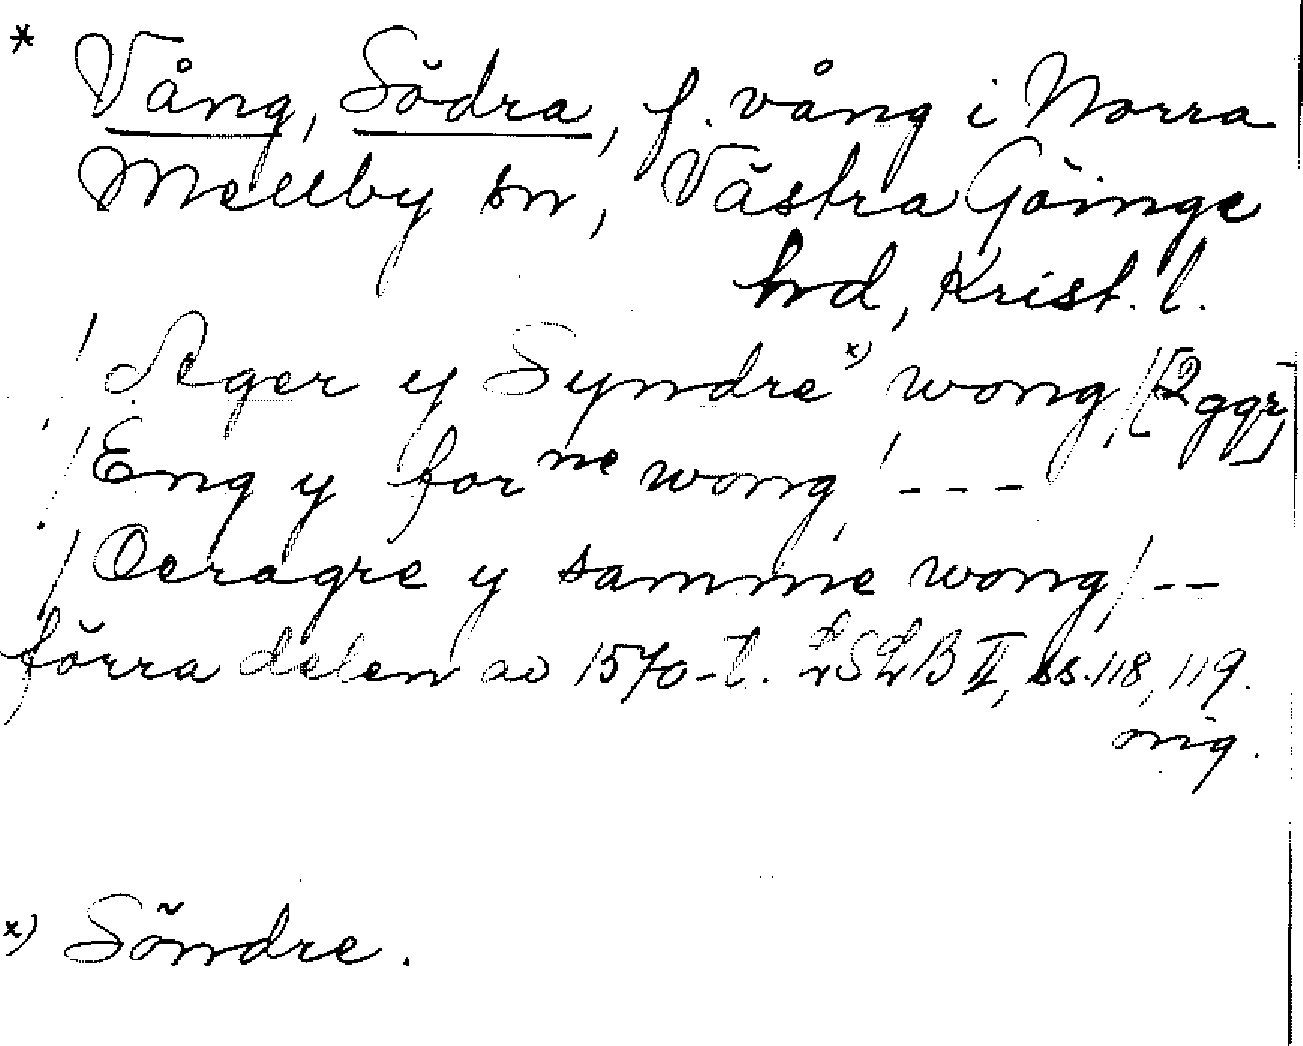 * Vång, Södra, f. vång i Norra
Mellby sn, Västra Göinge
hd, Krist. l.
/ Ager y Syndre x) wong / [2 ggr]
/ Eng y for ne wong / - - -
/ Oeragre y samme wong / - -
förra delen av 1570-t. LSLB II, ss. 118, 119.
orig.
x) Söndre.